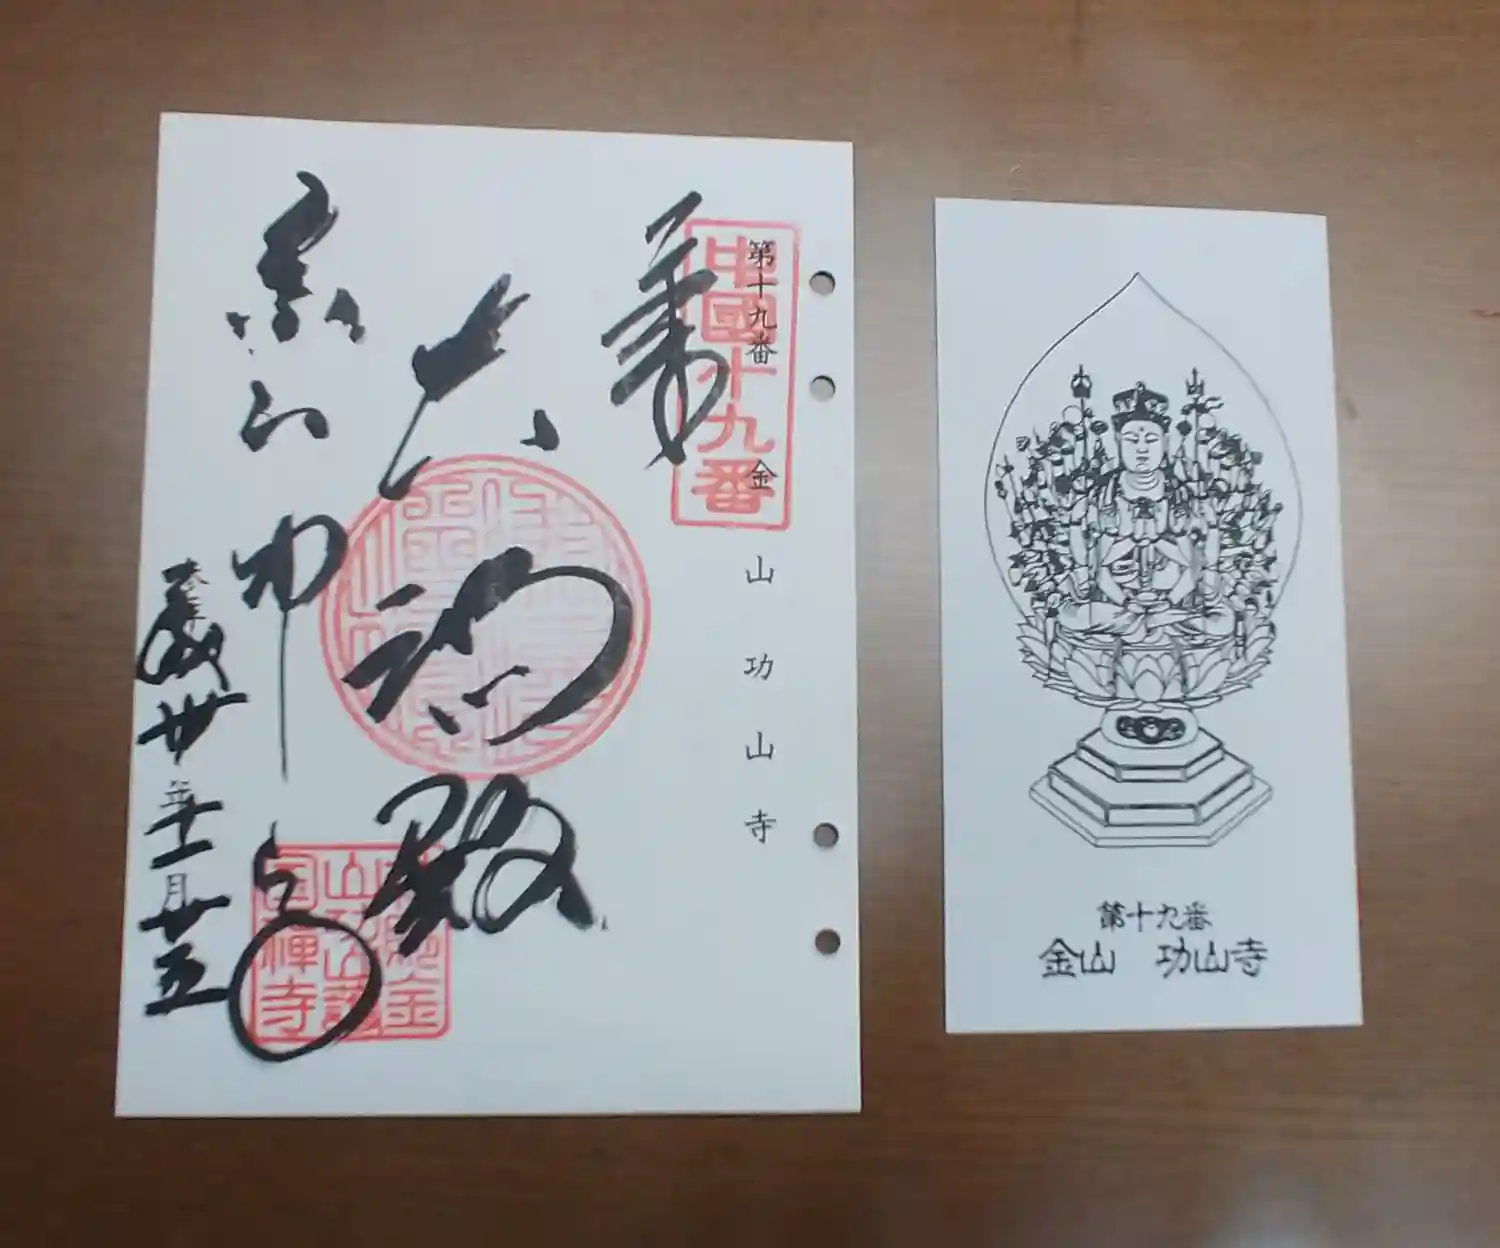 第十九番 金山功山寺
中國十九番
奉
大悲殿
功山寺
奉拝
平成卅年十一月廿五
第十九番
金山 功山寺